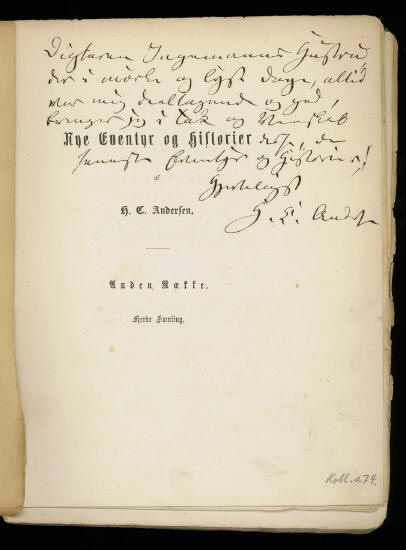 Digteren Ingemanns Hustru,
der i mørke og lyse Dage, altid
var mig deeltagende og god,
bringer jeg i Tak og Venskab
Nye Eventyr og Historier
disse, de
seneste Eventyr og Historier!
Hjerteligst
H. C. Andersen
af
H. C. Andersen.
Anden Række.
Fjerde Samling.
Koll. s. 74.